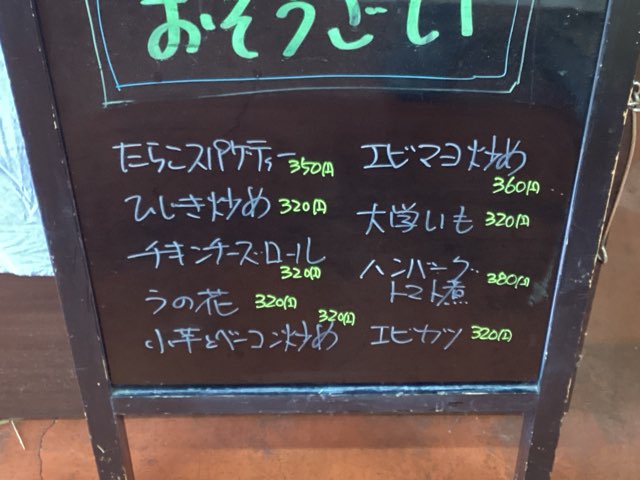 おそうざい
たらこスパゲティー 350円
ひじき炒め 320円
チキンチーズロール
320円
うの花 320円
小芋とベーコン炒め 320円
エビマヨ炒め
360円
大学いも 320円
ハンバーグ
トマト煮 380円
エビカツ 320円